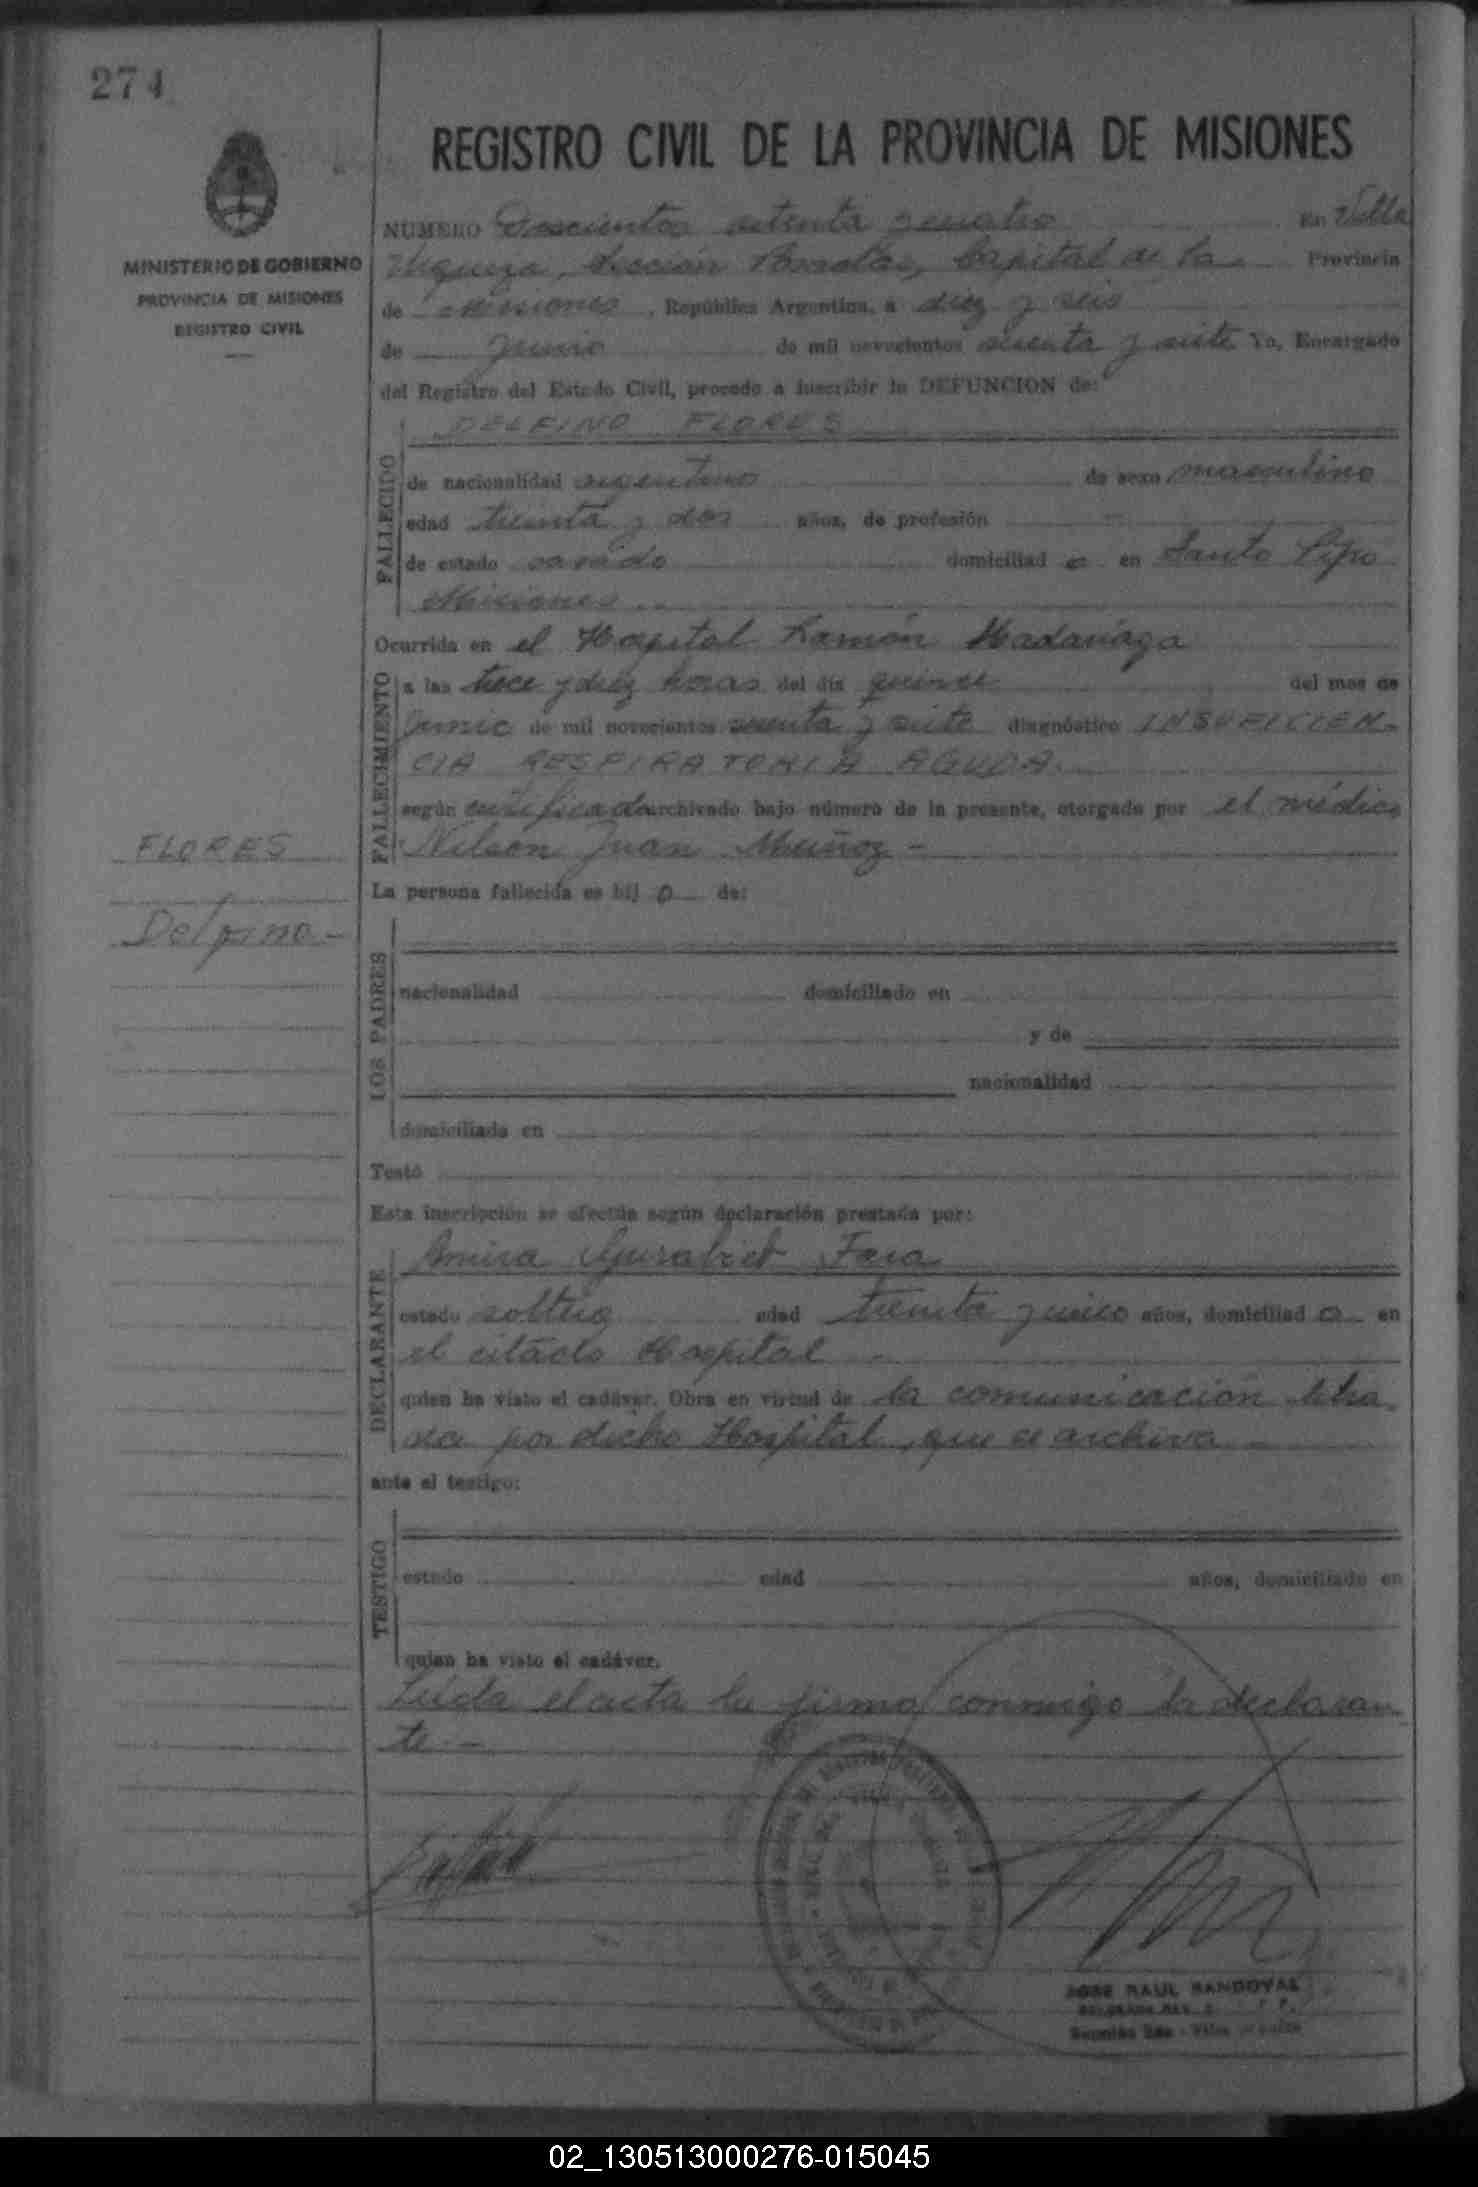 274
REGISTRO CIVIL DE LA PROVINCIA DE MISIONES
MINISTERIO DE GOBIERNO
PROVINCIA DE MISIONES
REGISTRO CIVIL
NUMERO Doscientos setenta y cuatro En Villa
Urquiza, Sección Posadas, Capital de la Provincia
de Misiones, República Argentina, a diez y seis
de Junio de mil novecientos sesenta y siete Yo, Encargado
del Registro del Estado Civil, procedo a inscribir la DEFUNCION de:
DELFINO FLORES
FALLECIDO
de nacionalidad argentino de sexo masculino
edad treinta y dos años, de profesión
de estado casado domiciliad o en Santo Pipo
Misiones
Ocurrida en el Hospital Ramón Madariaga
FALLECIMIENTO
a las trece y diez horas del día quince del mes de
Junio de mil novecientos sesenta y siete diagnóstico INSUFICIEN-
CIA RESPIRATORIA AGUDA.
según certificado archivado bajo número de la presente, otorgado por el médico
Nilson Juan Muñoz -
FLORES
Delfino -
La persona fallecida es hij o de:
LOS PADRES
nacionalidad domiciliado en
y de
nacionalidad
domiciliada en
Testó
Esta inscripción se efectúa según declaración prestada por:
DECLARANTE
Amira
estado soltera edad treinta y cinco años, domiciliad a en
el citado Hospital
quien ha visto el cadáver. Obra en virtud de la comunicación libra-
da por dicho Hospital, que se archiva
ante el testigo:
TESTIGO
estado edad años, domiciliado en
quien ha visto el cadáver.
Leída el acta la firma conmigo la declaran
te -
JOSE RAUL SANDOVAL
02_130513000276-015045